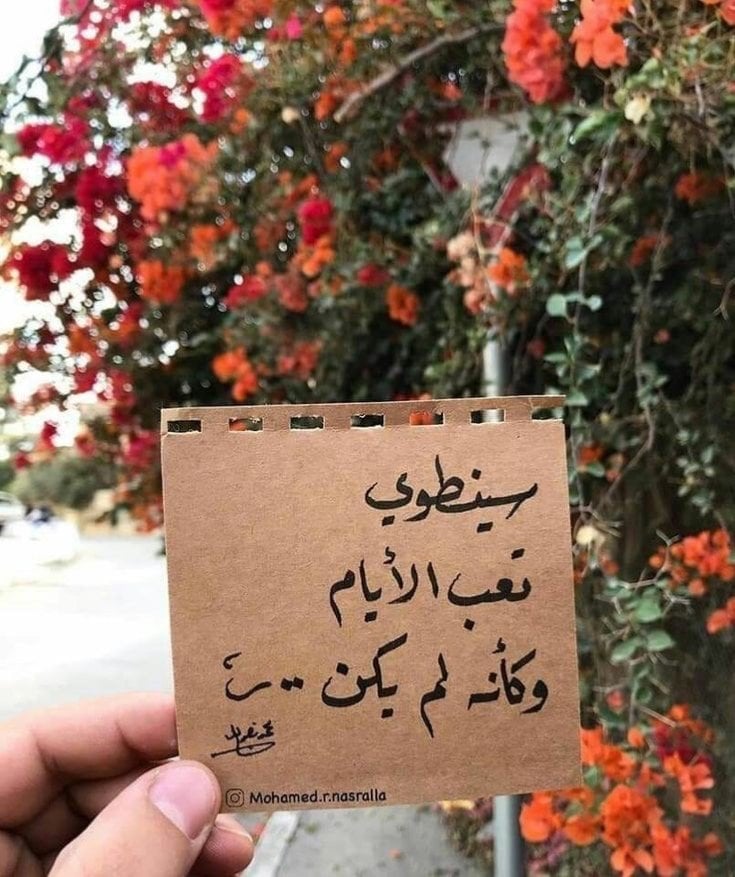 سينطوي
تعب الأيام
وكأنه لم يكن ..
Mohamed.r.nasralla